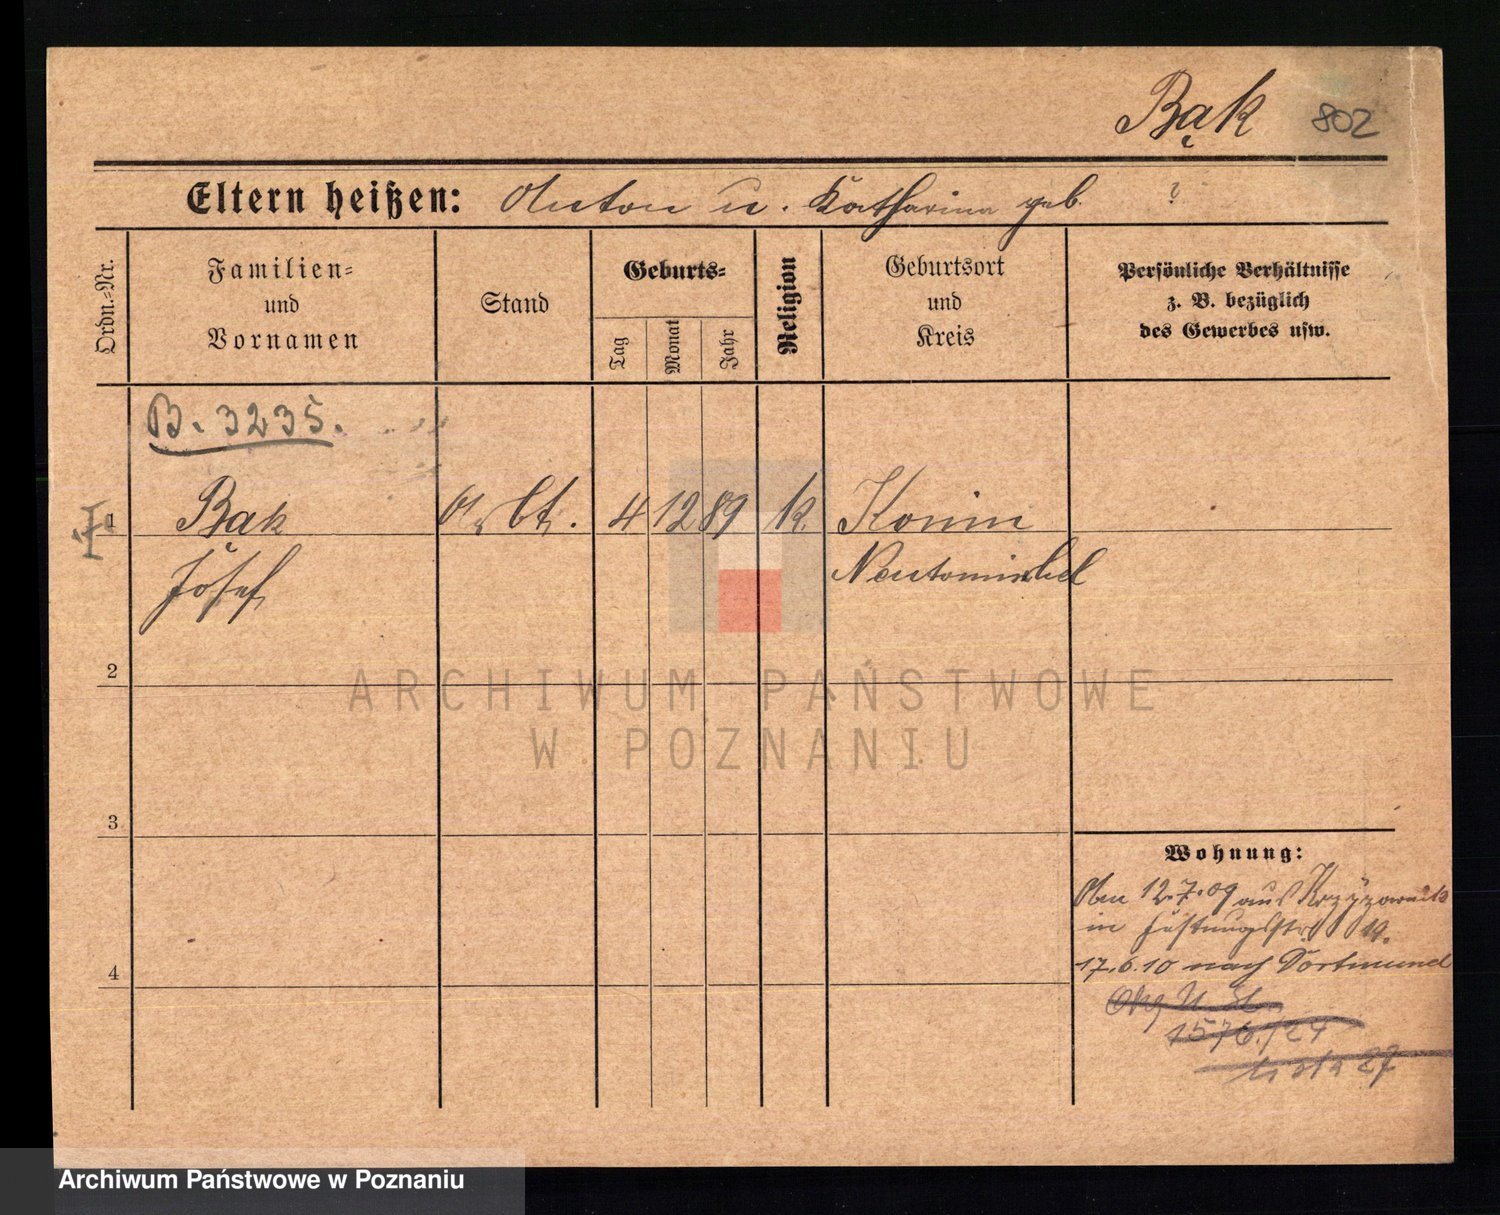 Bąk 802
Eltern heißen: Anton u. Katharina geb. ?
Ordn.=Nr.
Familien=
und
Vornamen
Stand
Geburts=
Tag
Monat
Jahr
Religion
Geburtsort
und
Kreis
Persönliche Verhältnisse
z. B. bezüglich
des Gewerbes usw.
B. 3235.
1 Bak Arbt. 4 12 89 k. Konin
Josef Neutomischel
2
ARCHIWUM PAŃSTWOWE
W POZNANIU
3
Wohnung:
12.7.09 aus
in Festungsstr.
4
17.6.10 nach Dortmund
1576/24
27
Archiwum Państwowe w Poznaniu